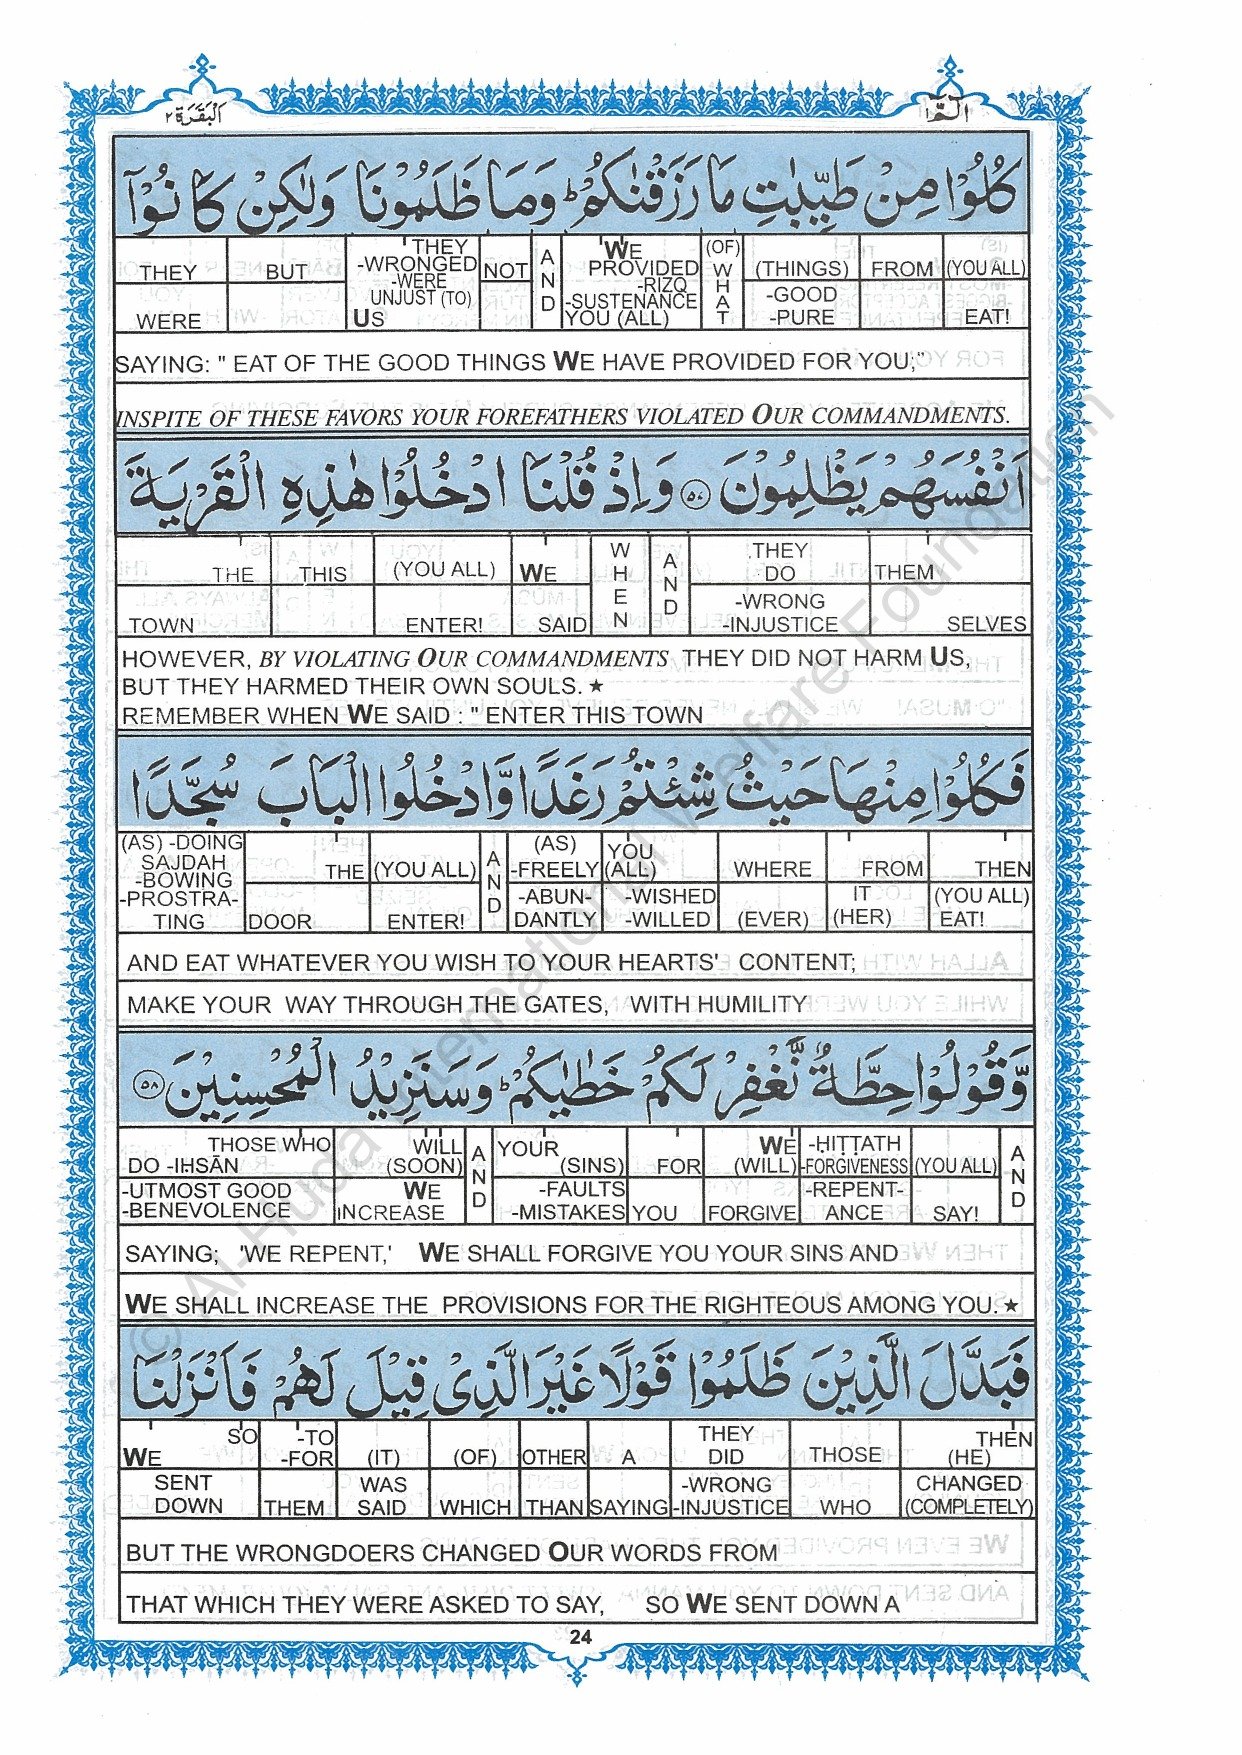 البَقَرَة ٢
الٓمّٓ ١
كُلُوْا مِنْ طَيِّبٰتِ مَا رَزَقْنٰكُمْ ؕ وَمَا ظَلَمُوْنَا وَلٰكِنْ كَانُوْٓا
(YOU ALL) EAT! FROM (THINGS) -GOOD -PURE (OF) WHAT WE PROVIDED -RIZQ -SUSTENANCE YOU (ALL) AND NOT THEY -WRONGED -WERE UNJUST (TO) US BUT THEY WERE
SAYING: " EAT OF THE GOOD THINGS WE HAVE PROVIDED FOR YOU;"
INSPITE OF THESE FAVORS YOUR FOREFATHERS VIOLATED OUR COMMANDMENTS.
اَنْفُسَهُمْ يَظْلِمُوْنَ ٥٧ وَاِذْ قُلْنَا ادْخُلُوْا هٰذِهِ الْقَرْيَةَ
THEM SELVES THEY DO -WRONG -INJUSTICE AND WHEN WE SAID (YOU ALL) ENTER! THIS THE TOWN
HOWEVER, BY VIOLATING OUR COMMANDMENTS THEY DID NOT HARM US,
BUT THEY HARMED THEIR OWN SOULS. ★
REMEMBER WHEN WE SAID : " ENTER THIS TOWN
فَكُلُوْا مِنْهَا حَيْثُ شِئْتُمْ رَغَدًا وَّادْخُلُوا الْبَابَ سُجَّدًا
THEN (YOU ALL) EAT! FROM IT (HER) WHERE (EVER) YOU (ALL) -WISHED -WILLED (AS) -FREELY -ABUN- DANTLY AND (YOU ALL) ENTER! THE DOOR (AS) -DOING SAJDAH -BOWING -PROSTRA- TING
AND EAT WHATEVER YOU WISH TO YOUR HEARTS' CONTENT;
MAKE YOUR WAY THROUGH THE GATES, WITH HUMILITY
وَّقُوْلُوْا حِطَّةٌ نَّغْفِرْ لَكُمْ خَطٰيٰكُمْ ؕ وَسَنَزِيْدُ الْمُحْسِنِيْنَ ٥٨
AND (YOU ALL) SAY! -HIṬṬATH -FORGIVENESS -REPENT- ANCE WE (WILL) FORGIVE FOR YOU YOUR (SINS) -FAULTS -MISTAKES AND WILL (SOON) WE INCREASE THOSE WHO DO -IHSĀN -UTMOST GOOD -BENEVOLENCE
SAYING; 'WE REPENT,' WE SHALL FORGIVE YOU YOUR SINS AND
WE SHALL INCREASE THE PROVISIONS FOR THE RIGHTEOUS AMONG YOU. ★
فَبَدَّلَ الَّذِيْنَ ظَلَمُوْا قَوْلًا غَيْرَ الَّذِيْ قِيْلَ لَهُمْ فَاَنْزَلْنَا
THEN (HE) CHANGED (COMPLETELY) THOSE WHO THEY DID -WRONG -INJUSTICE A SAYING OTHER THAN (OF) WHICH (IT) WAS SAID -TO -FOR THEM SO WE SENT DOWN
BUT THE WRONGDOERS CHANGED OUR WORDS FROM
THAT WHICH THEY WERE ASKED TO SAY, SO WE SENT DOWN A
24
© Al-Huda International Welfare Foundation